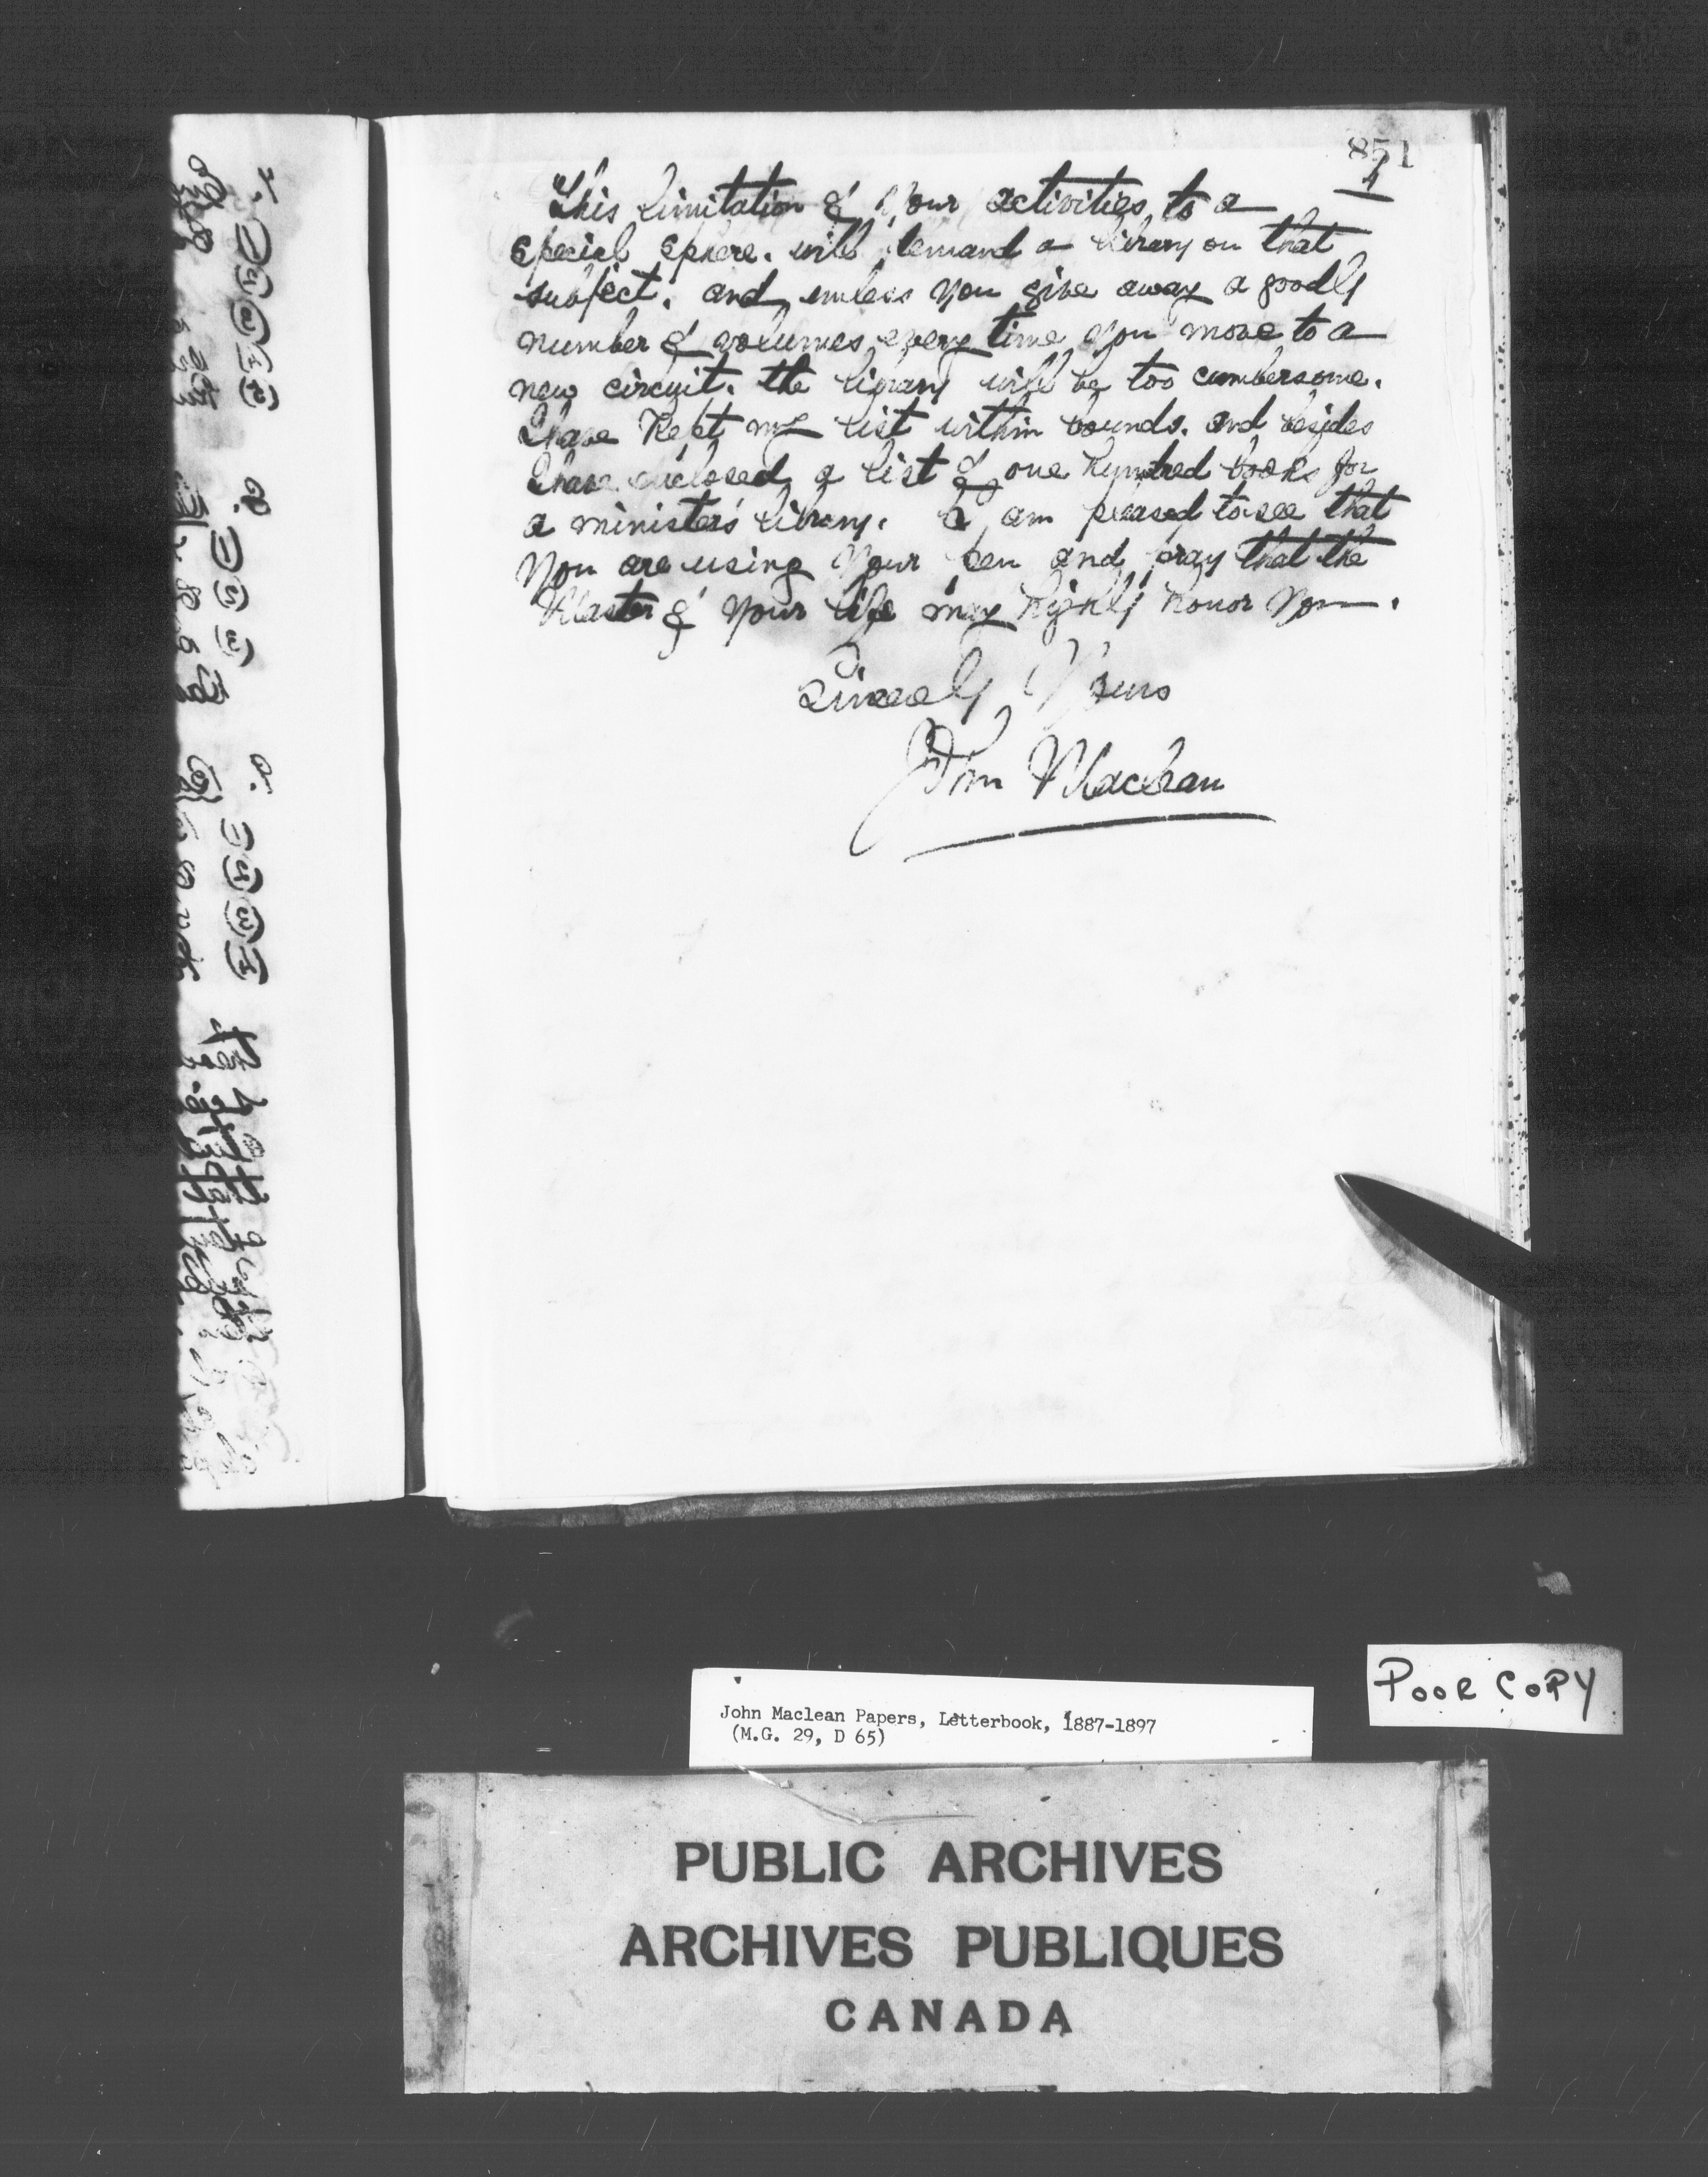 851
4
This limitation of your activities to a
special sphere. will demand a library on that
subject. and unless you give away a goodly
number of volumes every time you move to a
new circuit. the library will be too cumbersome.
I have kept my list within bounds. and besides
I have enclosed a list of one hundred books for
a minister's library. I am pleased to see that
you are using your pen and pray that the
Master of your life may highly honor you.
Sincerely Yours
John Maclean
POOR COPY
John Maclean Papers, Letterbook, 1887-1897
(M.G. 29, D 65)
PUBLIC ARCHIVES
ARCHIVES PUBLIQUES
CANADA